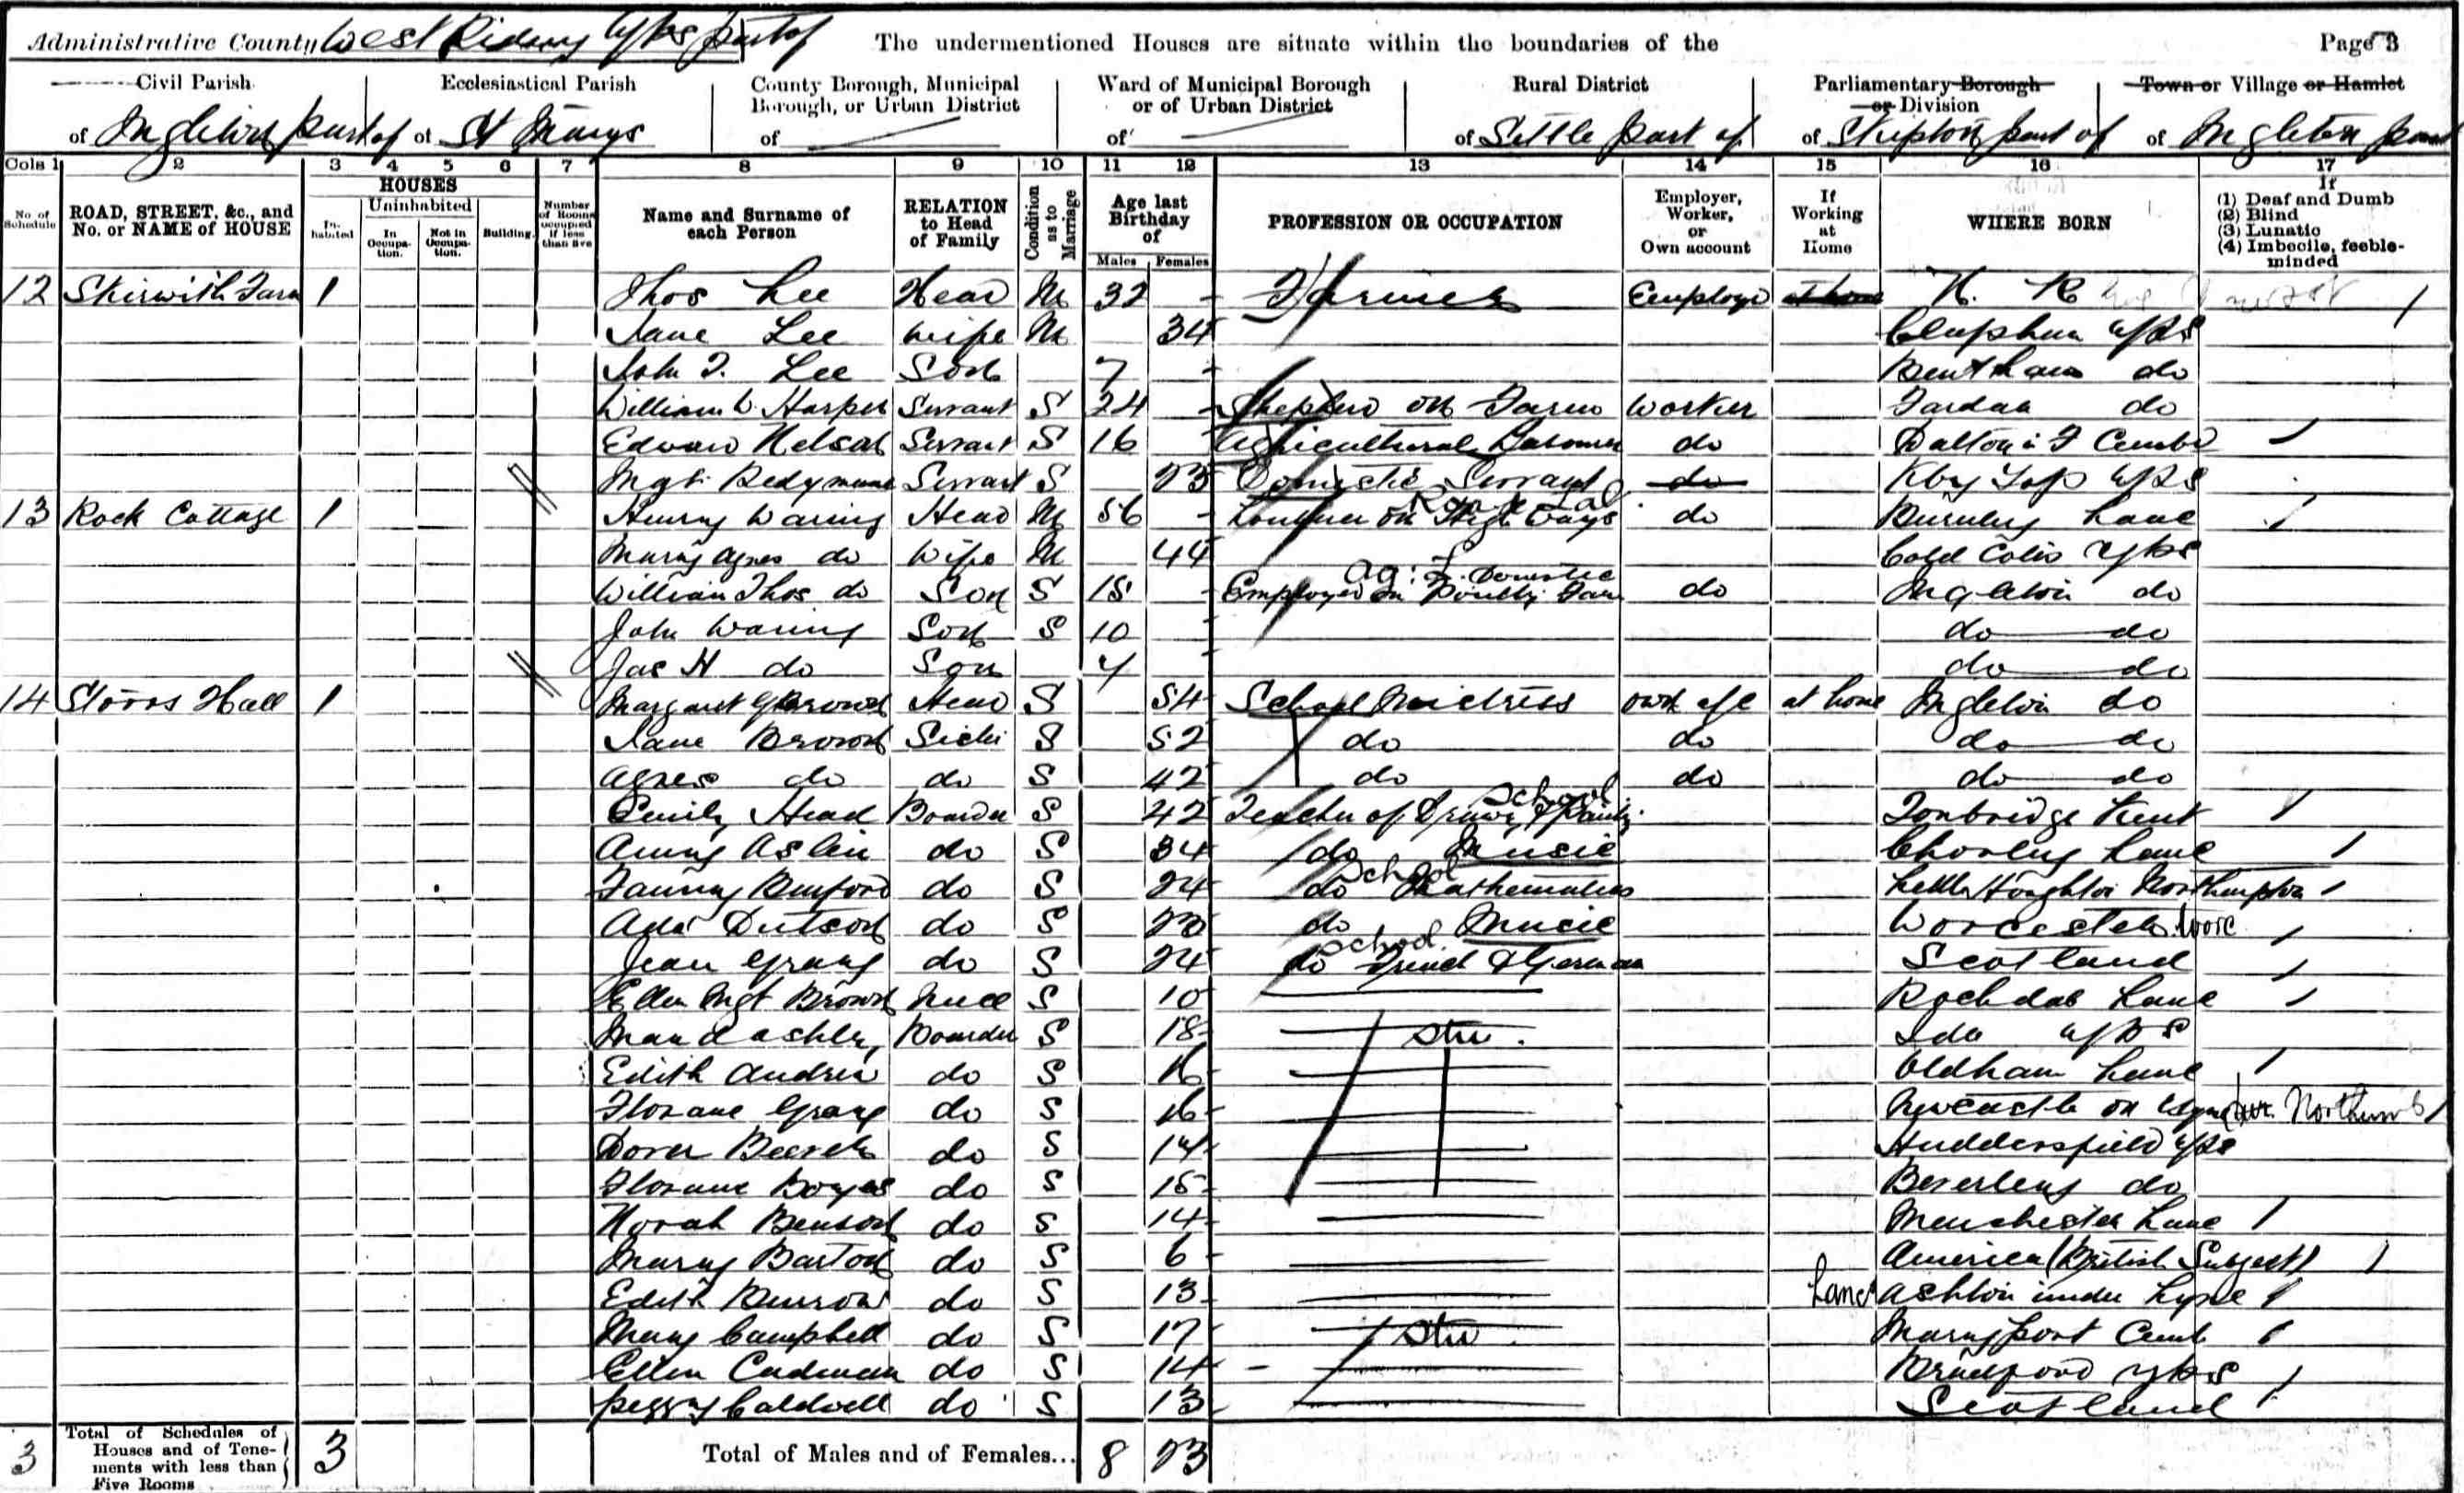 Administrative County West Riding Yks part of The undermentioned Houses are situate within the boundaries of the Page 3
Civil Parish Ecclesiastical Parish County Borough, Municipal Borough, or Urban District Ward of Municipal Borough or of Urban District Rural District Parliamentary Borough or Division Town or Village or Hamlet
of Ingleton part of of St Marys of of of Settle part of of Skipton part of of Ingleton part
Cols 1 2 3 4 5 6 7 8 9 10 11 12 13 14 15 16 17
No. of Schedule ROAD, STREET, &c., and No. or NAME of HOUSE HOUSES Inhabited Uninhabited In Occupation. Not in Occupation. Building. Number of Rooms occupied if less than five Name and Surname of each Person RELATION to Head of Family Condition as to Marriage Age last Birthday of Males Females PROFESSION OR OCCUPATION Employer, Worker, or Own account If Working at Home WHERE BORN If (1) Deaf and Dumb (2) Blind (3) Lunatic (4) Imbecile, feeble-minded
12 Skirwith Farm 1 Thos Lee Head M 32 Farmer Employer at home N. K.
Jane Lee wife M 34 Clapham Yks
John T. Lee Son 7 Bentham do
William W. Harper Servant S 24 Shepherd on Farm Worker do
Edward Nelson Servant S 16 Agricultural Labourer do Dalton i F Cumb
Mgt Servant S 23 Domestic Servant do Kby Yks
13 Rock Cottage 1 Henry Waring Head M 56 on High Ways do Burnley Lanc
Mary Agnes do Wife M 44 Cold Yks
William Thos do Son S 15 Ag: Domestic Employed on Poultry Farm do Ingleton do
John Waring Son S 10 do do
Jas H do Son 4 do do
14 Storrs Hall 1 Margaret Brown Head S 54 School Mistress own a/c at home Ingleton do
Jane Brown Sister S 52 do do do do
Agnes do do S 42 do do do do
Emily Head Boarder S 42 School Teacher of Drawing & Painting Tonbridge Kent
Anny Aslin do S 34 do Music Chorley Lanc
Fanny do S 24 do School Mathematics Little Houghton Northampton
Ada do S 23 do Music Worcester Worc
Jean Grang do S 24 do School French & German Scotland
Ellen Mgt Brown Niece S 10 Rochdale Lanc
Maud Ashley Boarder S 18 Stu. Yks
Edith Andrew do S 16 Oldham Lanc
Florance Grang do S 16 Newcastle on Tyne Northumb
Dora do S 14 Huddersfield Yks
Florance Boyes do S 15 Beverley do
Norah Benson do S 14 Manchester Lanc
Mary Barton do S 6 America (British Subject)
Edith Burrow do S 13 Lanc Ashton under Lyne
Mary Campbell do S 17 Stu. Maryport Cumb
Ellen Cadman do S 14 Bradford Yks
Peggy Caldwell do S 13 Scotland
3 Total of Schedules of Houses and of Tenements with less than Five Rooms 3 Total of Males and of Females... 8 23